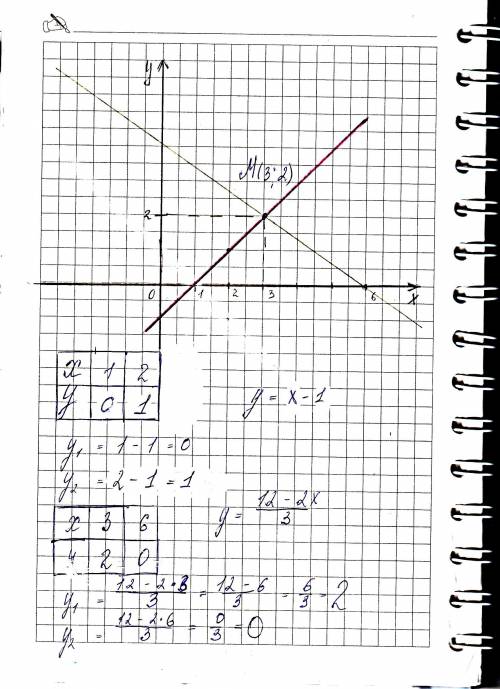 y
M(3; 2)
2
0 1 2 3 6 x
x 1 2
y 0 1
y = x - 1
y₁ = 1 - 1 = 0
y₂ = 2 - 1 = 1
x 3 6
y 2 0
y = (12 - 2x)/3
y₁ = (12 - 2·3)/3 = (12 - 6)/3 = 6/3 = 2
y₂ = (12 - 2·6)/3 = 0/3 = 0